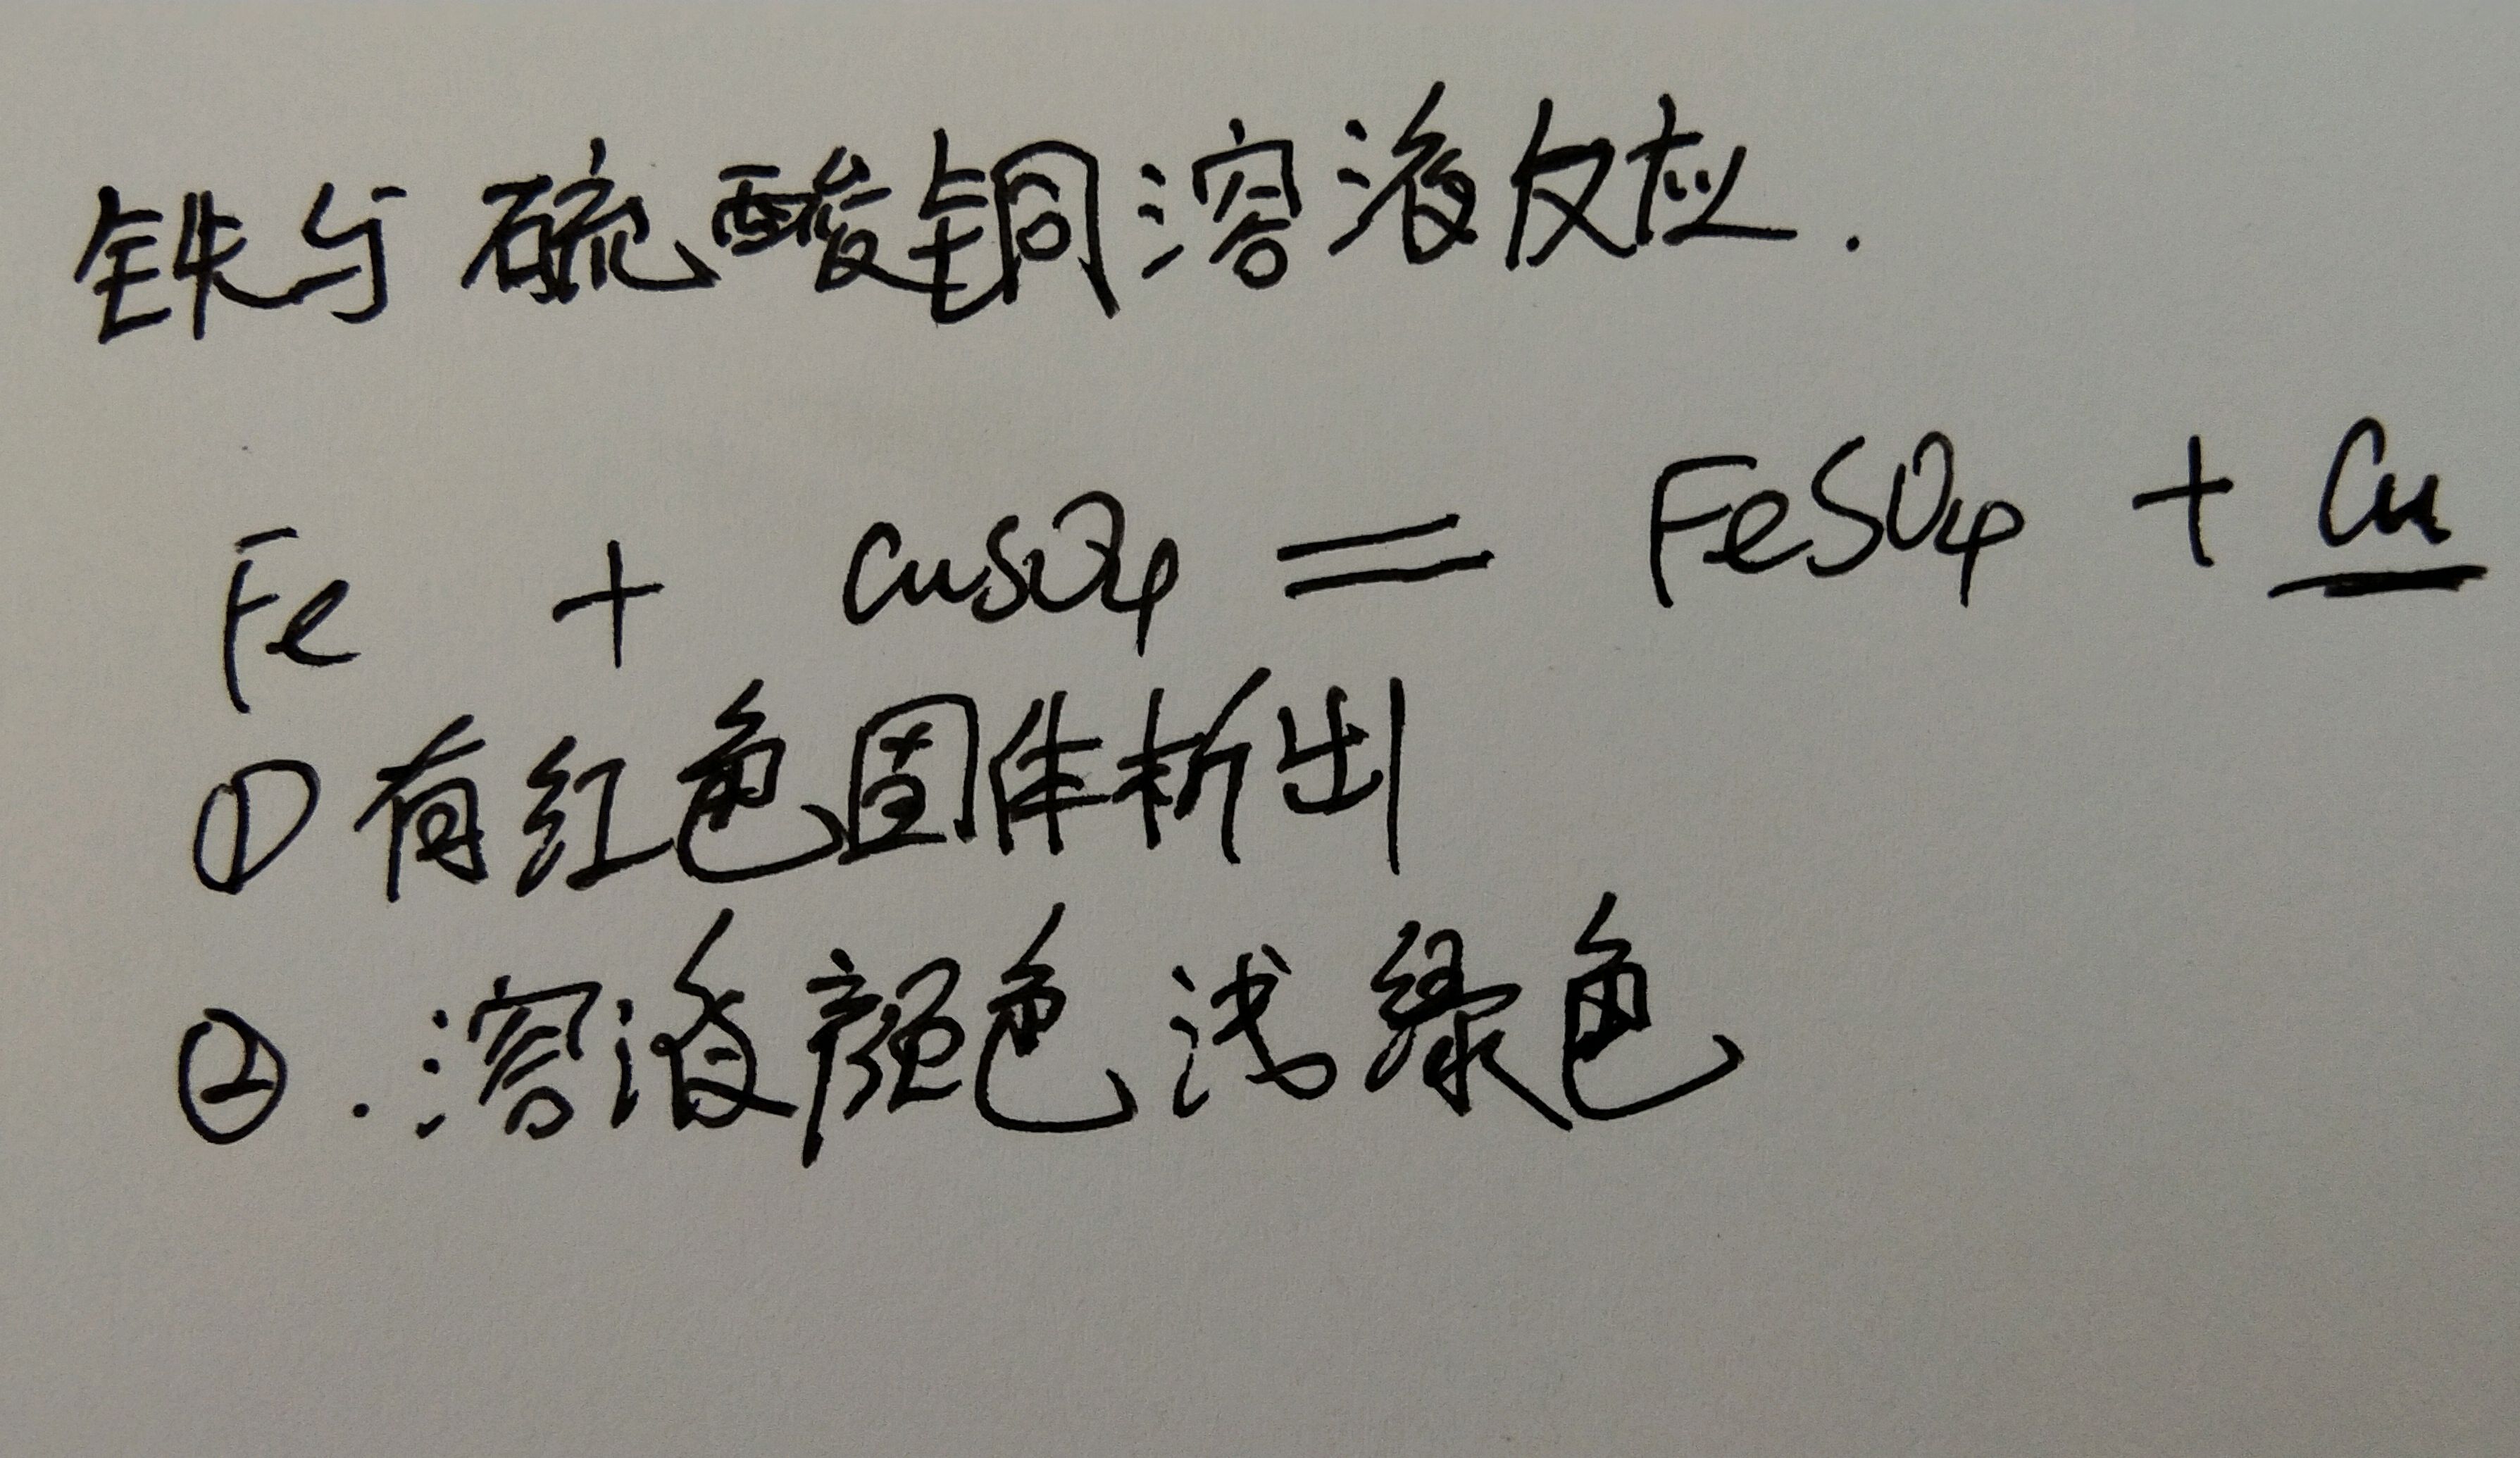 铁与硫酸铜溶液反应.
Fe + CuSO4 = FeSO4 + Cu
① 有红色固体析出
②.溶液颜色浅绿色